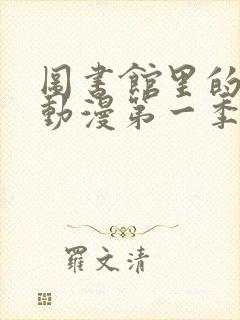 圖書館里的
動漫第一季
羅文清